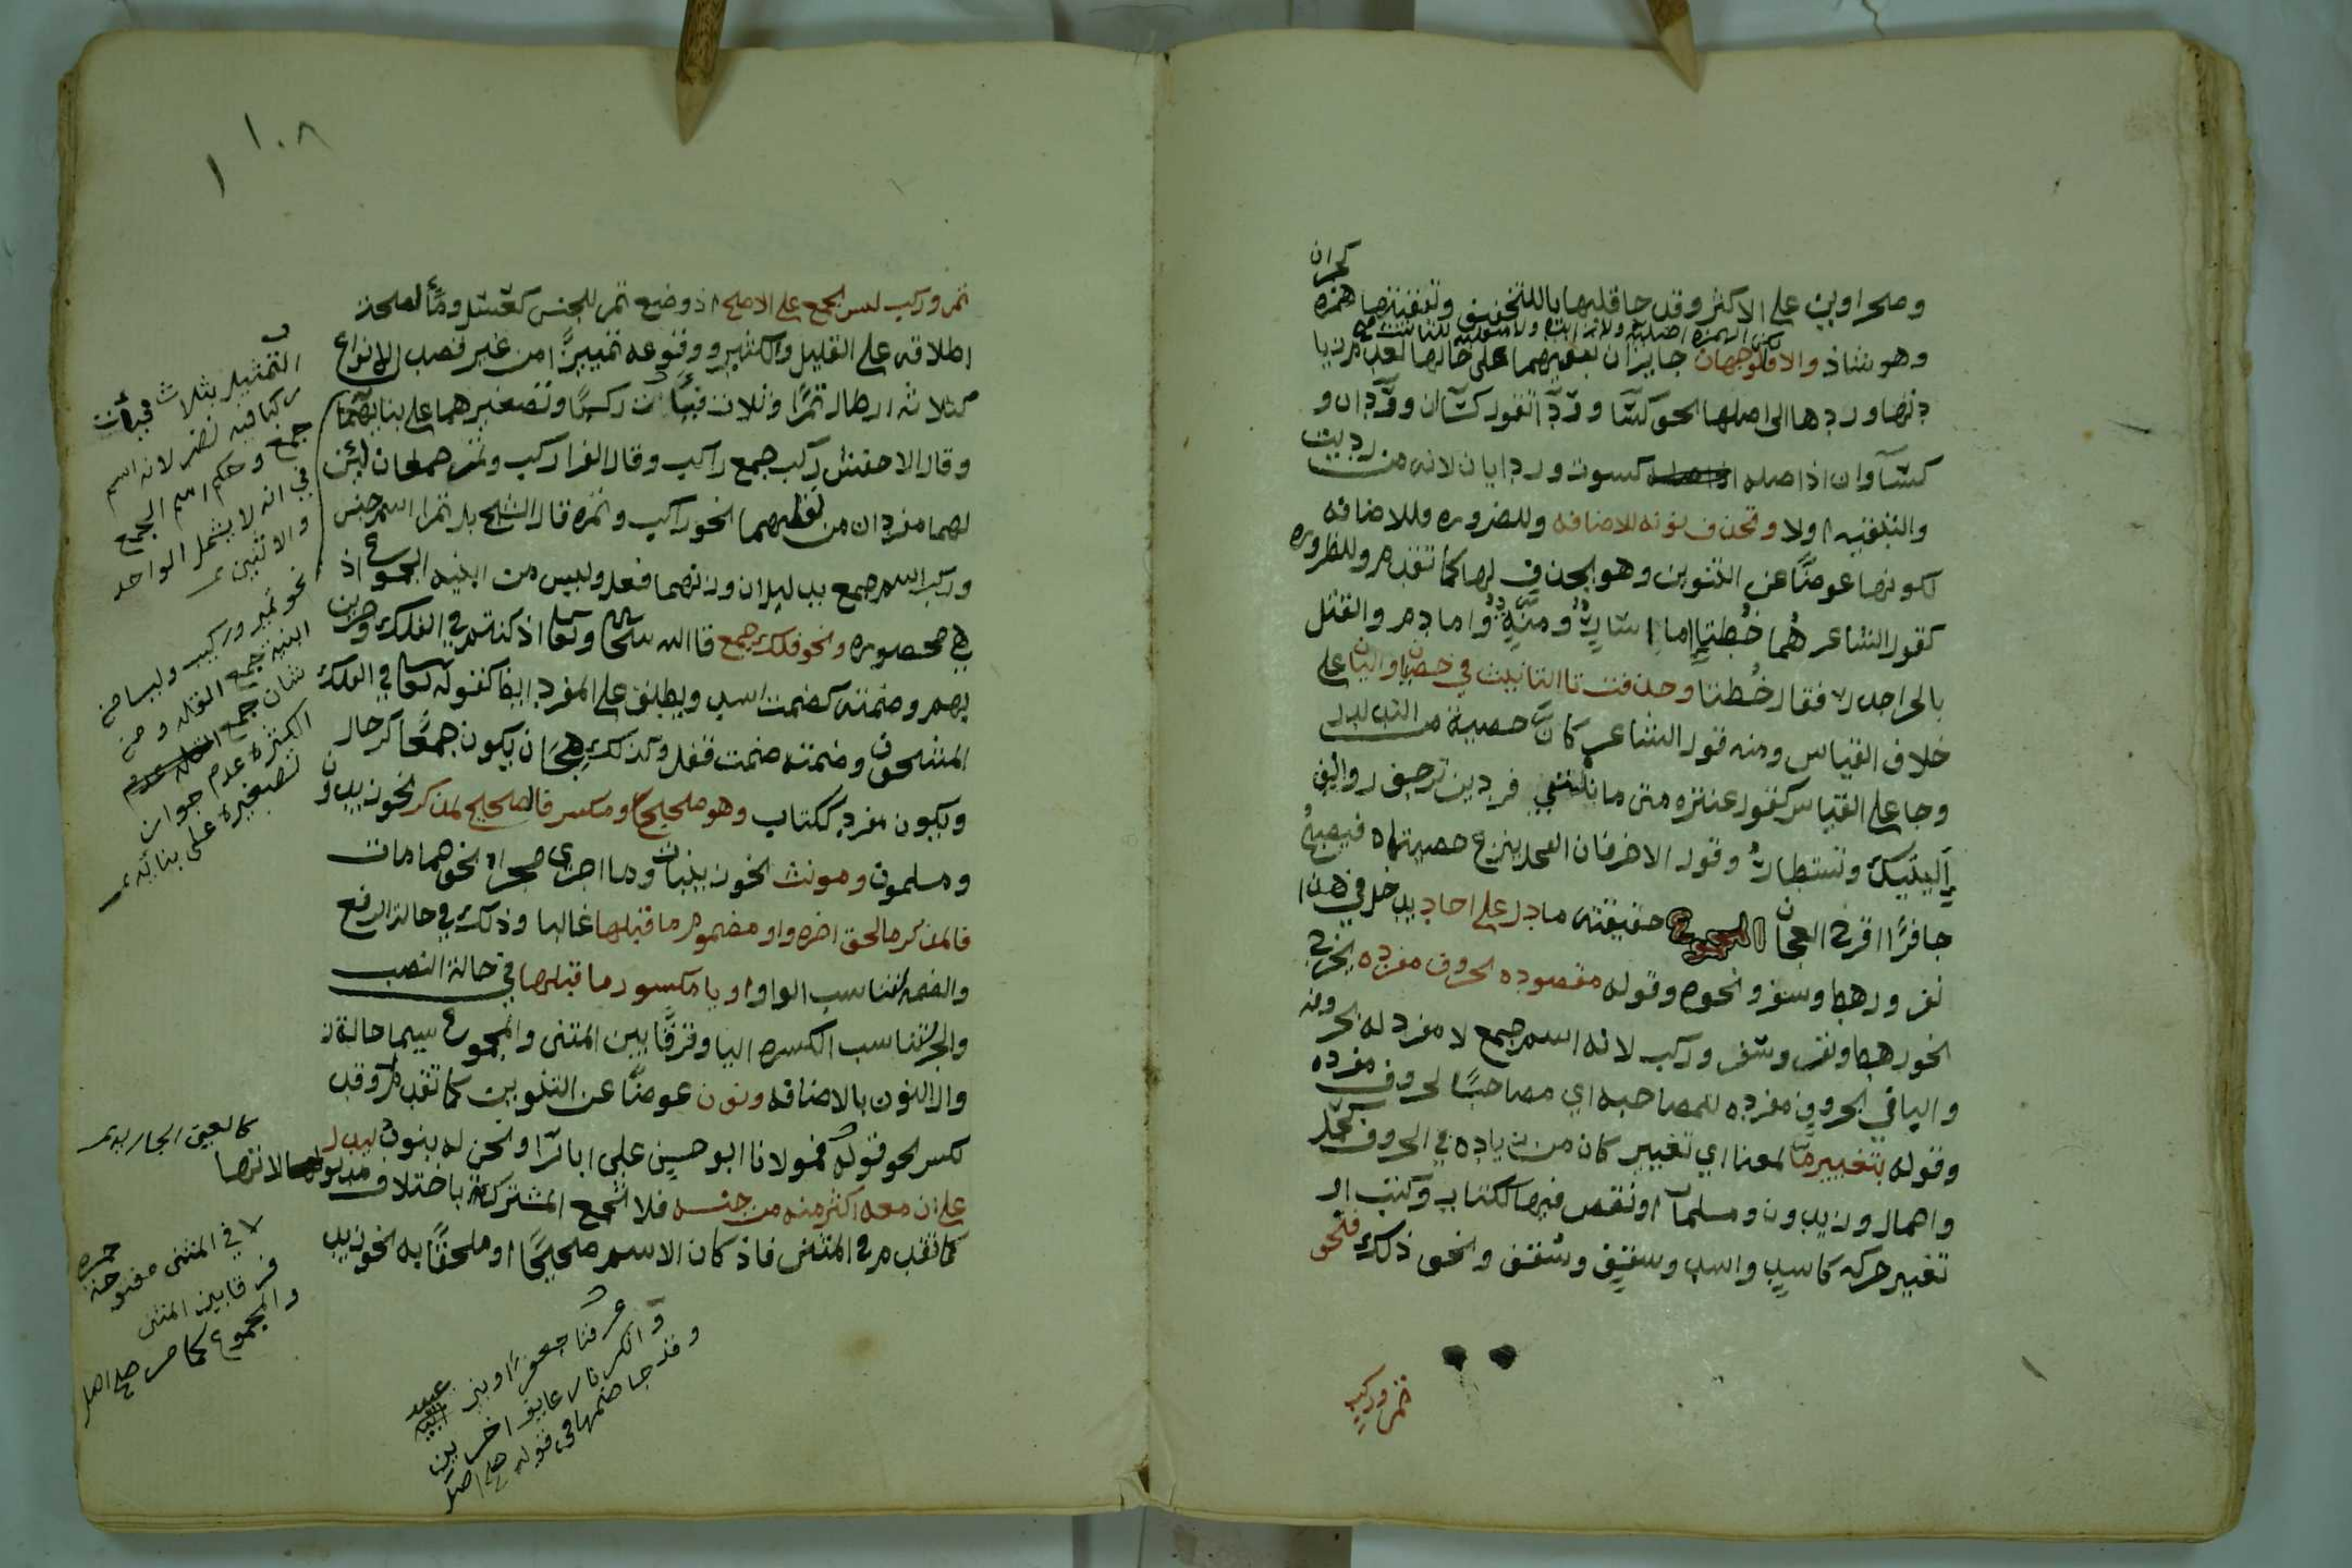 كحمران
وصحراوين على الاكثر وقد جا قلبها ياللتخفيف وتبقيتها همزه
وهو شاذ والا فالوجهان جايزان بقيهما على حالها لعدم زيا
دتها وردها الى اصلها نحو كسآ وردّآ تقول كسآان وردّآان و
كسآوان اذ اصله كسوت وردايان لانه من رديت
والتثنيه اولا وتحذف نونه للاضافه وللضروره وللاضافه
لكونها عوضًا عن التنوين وهو يحذف لها كما تقدم وللظروره
كقول الشاعر هُما خُطتا اِما اِسارٌ ومنّةٌ واما دم والقتل
بالحر اجدر فقال خُطتا وحذفت تا التانيث في خصيان واليان على
خلاف القياس ومنه قول الشاعر كانّ خصييه من التدلدل
وجا على القياس كقول عنتره متى ما تلقني فردين ترجف روانف
اَليتيك وتستطارُ وقول الاخر فان الفحل ينزع خصيتاه فيصبحُ
جافرًا قرح العجان المجموع حقيقته ما دل على احاد يدخل في هذا
نفر ورهط وسفر ونحوه وقوله مقصوده بحروف مفرده يخرج
نحو رهط ونفر وسفر وركب لانه اسم جمع لا مفرد له بحروفه
والبا في بحروف مفرده للمصاحبه اي مصاحبًا لحروف مفرده
وقوله بتغيير مّا لمعنا اي تغيير كان من زياده في الحروف كجمّل
واحمال وزيدون ومسلمات او نقص فيها ككتاب وكتب او
تغيير حركه كاسيد واسد وسقيف وسقف ونحو ذلك فنحو
تمر وركب
١٠٨
تمر وركب ليس بجمع على الاصح اذ وضع تمر للجنس كعسل ومأ لصحة
اطلاقه على القليل والكثير ووقوعه تمييزًا من غير قصد الانواع
كثلاثه ارطال تمرًا وثلاث فيأت ركبًا وتصغيرهما على بنايهما
وقال الاخفش ركب جمع راكب وقال الفرا ركب وتمر جمعان لئن
لهما مفردان من لفظيهما نحو راكب وتمره قال الشيخ بل تمرا اسم جنس
وركب اسم جمع بدليل ان وزنهما فعل وليس من ابنيه الجموع اذ
هي محصوره ونحو فلك جمع قال الله تعالى اذ كنتم في الفلك وجرين
بهم وضمته كضمت اسد ويطلق على المفرد ايضا كقوله تعالى في الفلك
المشحون وضمته ضمت قفل وكذلك هجان يكون جمعًا كرجال
ويكون مفرد ككتاب وهو صحيح ومكسر فالصحيح لمذكر نحو زيدون
ومسلمون ومونث نحو زينبات وما اجرى مجراه نحو حمامات
فالمذكر ما لحق اخره واو مضموم ما قبلها غالبا وذلك في حالة الرفع
والضمه لتناسب الواو او يا مكسور ما قبلها في حالة النصب
والجر لتناسب الكسره اليا وفرقًا بين المثنى والمجموع سيما حالة ز
وال النون بالاضافه ونون عوضًا عن التنوين كما تقدم وقد
كسر نحو قوله فمولانا ابو حسين علي ابا برًا ونحن له بنون ليدل
على ان معه اكثر منه من جنسه فلا تجمع المشتركة باختلاف مدلولها الا نزها
كما تقدم في المثنى فاذ كان الاسم صحيحًا او ملحقًا به نحو زيد
التمثيل بثلاث فيأت
ركبا فيه نضر لانه اسم
جمع وحكم اسم الجمع
في انه لا يشمل الواحد
والاثنين
نحو تمير وركيب وليسا من
ابنيه جمع القله ومن
شان جمع
الكثره عدم جواز
تصغيره على بنائه
كالعين الجاريه
لا في المثنى مفتوحة
فرقا بين المثنى
والمجموع كما مر صح اصل
عرفنا جعفرًا وبني عبيد
وانكرنا زعانف اخرين
وقد جا ضمها في قوله صح اصل